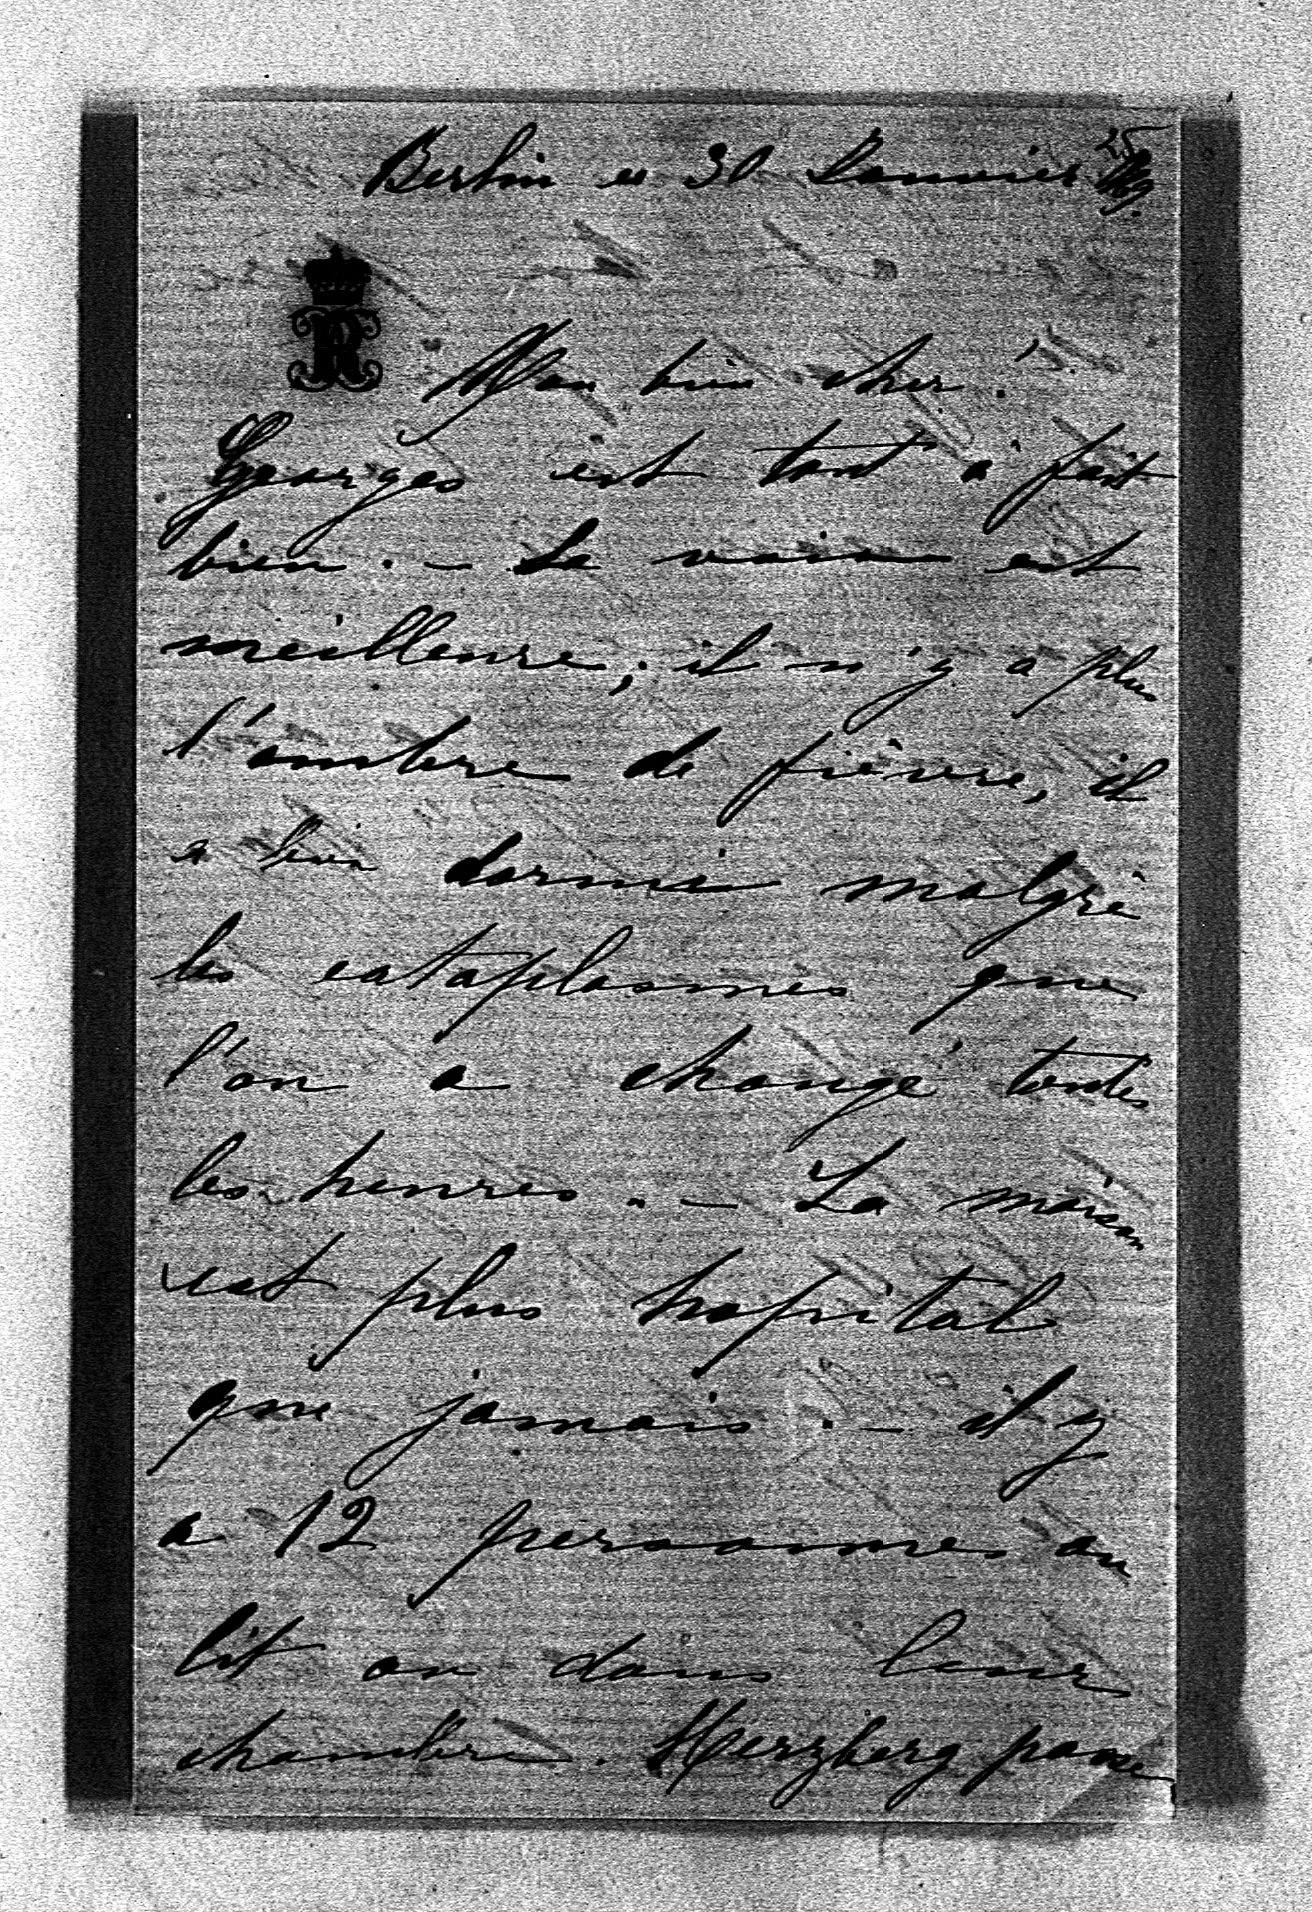 Berlin ce 30 Janvier 69.
25
R
Mon bien cher !
Georges est tout à fait
bien. – La veine est
meilleure; il n'y a plus
l'ombre de fièvre, il
a bien dormi malgré
les cataplasmes que
l'on a changé toutes
les heures. – La maison
est plus hopital
que jamais. – il y
a 12 personnes au
lit ou dans leur
chambre. Herzberg passe